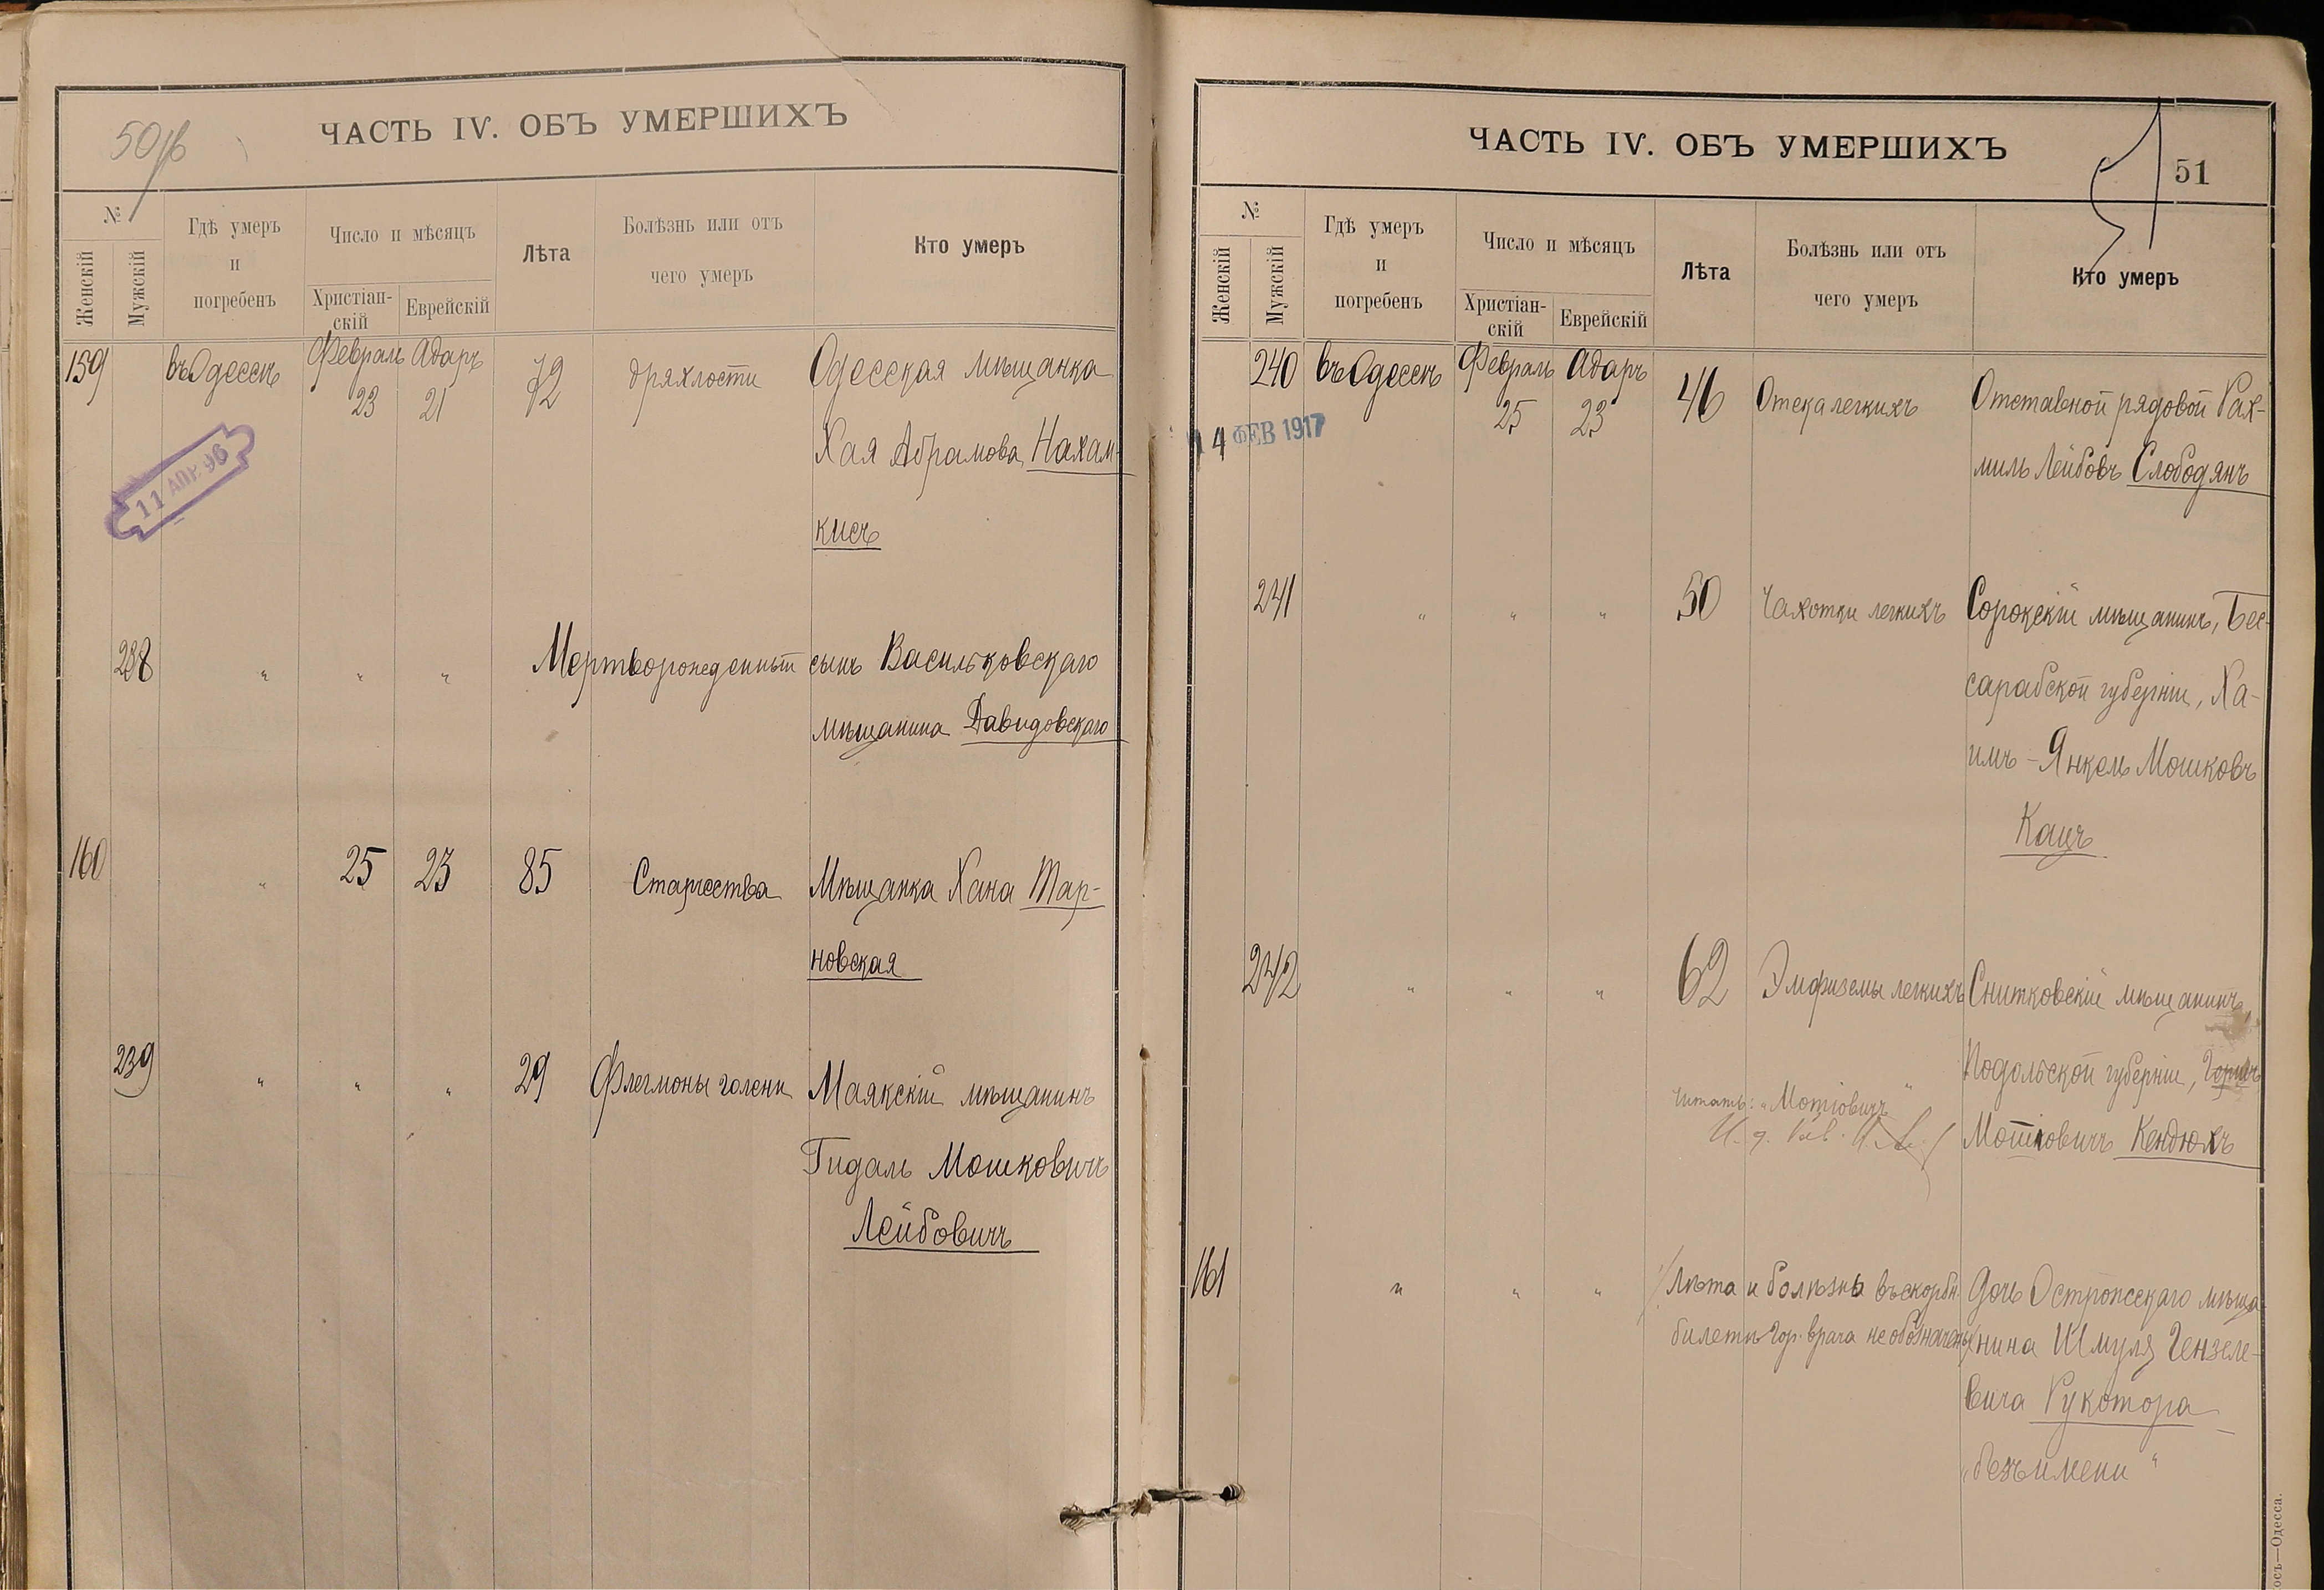 50 об
ЧАСТЬ IV. ОБЪ УМЕРШИХЪ
№
Женскій
Мужскій
Гдѣ умеръ
и
погребенъ
Число и мѣсяцъ
Христіан-
скій
Еврейскій
Лѣта
Болѣзнь или отъ
чего умеръ
Кто умеръ
159 въ Одессѣ Февраль Адаръ 72 дряхлости Одесская мѣщанка
23 21
Хая Абрамова Нахам-
кисъ
11 АПР. 96
238 " " " Мертворожденный сынъ Васильковскаго
мѣщанина Давидовскаго
160 " 25 23 85 Старчества Мѣщанка Хана Тар-
новская
239 " " " 29 Флегмоны голени Маякскій мѣщанинъ
Гидаль Мошковичъ
Лейбовичъ
ЧАСТЬ IV. ОБЪ УМЕРШИХЪ
51
№
Женскій
Мужскій
Гдѣ умеръ
и
погребенъ
Число и мѣсяцъ
Христіан-
скій
Еврейскій
Лѣта
Болѣзнь или отъ
чего умеръ
Кто умеръ
240 въ Одессѣ Февраль Адаръ 46 Отека легкихъ Отставной рядовой Рах-
25 23
14 ФЕВ 1917
миль Лейбовъ Слободянъ
241 " " " 50 Чахотки легкихъ Сорокскій мѣщанинъ, Бес-
сарабской губерніи, Ха-
имъ-Янкель Мошковъ
Кацъ
242 " " " 62 Эмфиземы легкихъ Снитковскій мѣщанинъ,
Подольской губерніи,
Читать: "Мотіовичъ"
И. д.
Мотіовичъ Кендюхъ
161 " " " Лѣта и болѣзнь въ скорбн. Дочь Острожскаго мѣща-
билетѣ Гор. врача не обозначены нина Шмуля Гензеле-
вича Рукотора
"безъ имени"
осъ—Одесса.